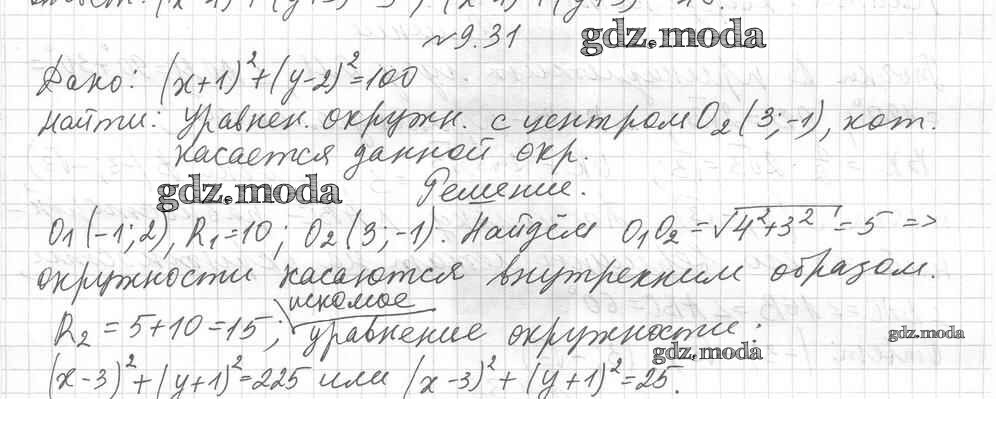 №9.31 gdz.moda
Дано: (x+1)²+(y-2)²=100
Найти: Уравнен. окружн. с центром O₂(3;-1), кот.
касается данной окр.
gdz.moda Решение.
O₁(-1;2), R₁=10; O₂(3;-1). Найдём O₁O₂=√4²+3²=5 =>
окружности касаются внутренним образом.
искомое
R₂=5+10=15; уравнение окружности:
gdz.moda
gdz.moda
(x-3)²+(y+1)²=225 или (x-3)²+(y+1)²=25.